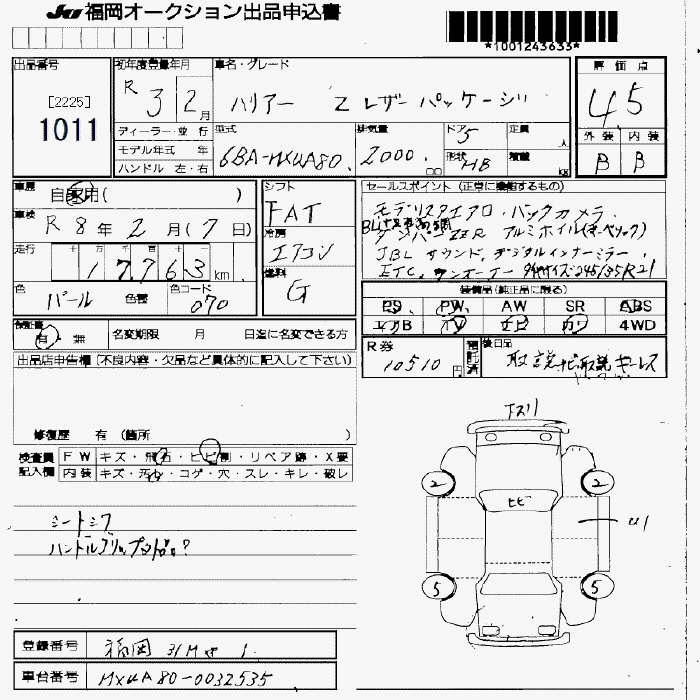 JU 福岡オークション出品申込書
*1001243633*
出品番号 [2225] 1011
初年度登録年月 R 3 2月
ディーラー・並行
モデル年式 年
ハンドル 左・右
車名・グレード ハリアー Z レザーパッケージ
型式 6BA-MXUA80
排気量 2000 cc
ドア 5
形状 HB
定員 人
積載 KG
評価点 4.5
外装 内装
B B
車歴 自家用( )
車検 R 8年 2月(7日)
走行 十万千百十 17763km
色 パール 色替 色コード 070
シフト FAT
冷房 エアコン
燃料 G
セールスポイント (正常に機能するもの)
モデリスタエアロ・バックカメラ
JBLサウンド、デジタルインナーミラー
ETC, 245/35R21
装備品(純正品に限る)
PS PW AW SR ABS
エアB TV ナビ カワ 4WD
保証書 有・無
名変期限 月 日迄に名変できる方
R券 10510円 預託済
後日品 取説 ナビ取説 キーレス
出品店申告欄 (不良内容・欠品など具体的に記入して下さい)
修復歴 有 (箇所 )
検査員記入欄
FW キズ・飛石・ヒビ割・リペア跡・X要
内装 キズ・汚レ・コゲ・穴・スレ・キレ・破レ
シートシワ
下スリ
2 2
ヒビ
U1
5 5
登録番号 福岡 31M せ 1
車台番号 MXUA80-0032535